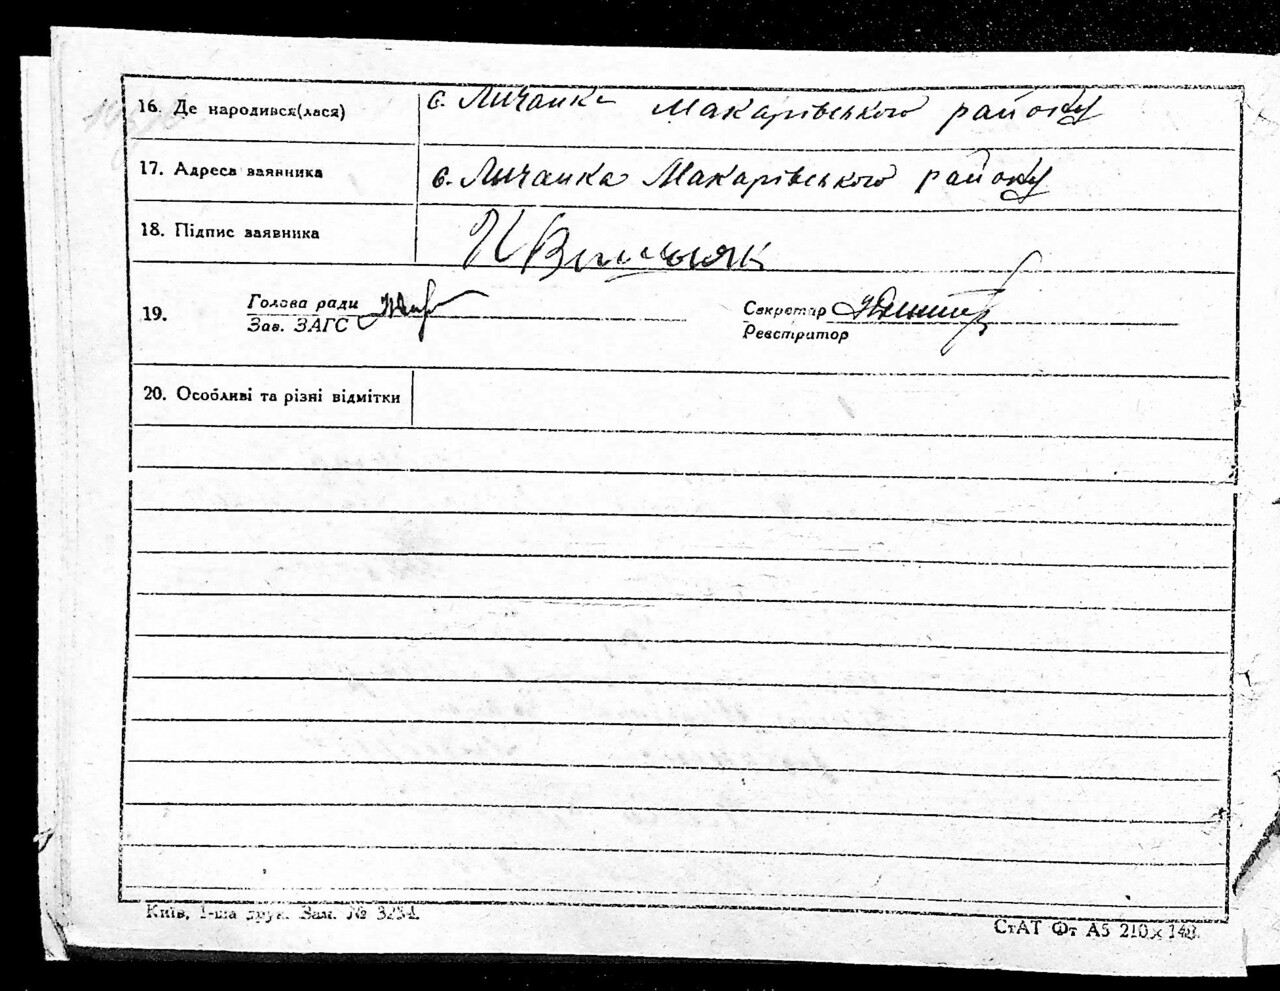 16. Де народився(лася) с. Личанка Макарівського району
17. Адреса заявника с. Личанка Макарівського району
18. Підпис заявника
19. Голова ради
Зав. ЗАГС
Секретар
Реєстратор
20. Особливі та різні відмітки
Київ, 1-ша друк. Зам. № 3234.
СтАТ Фт А5 210х148.